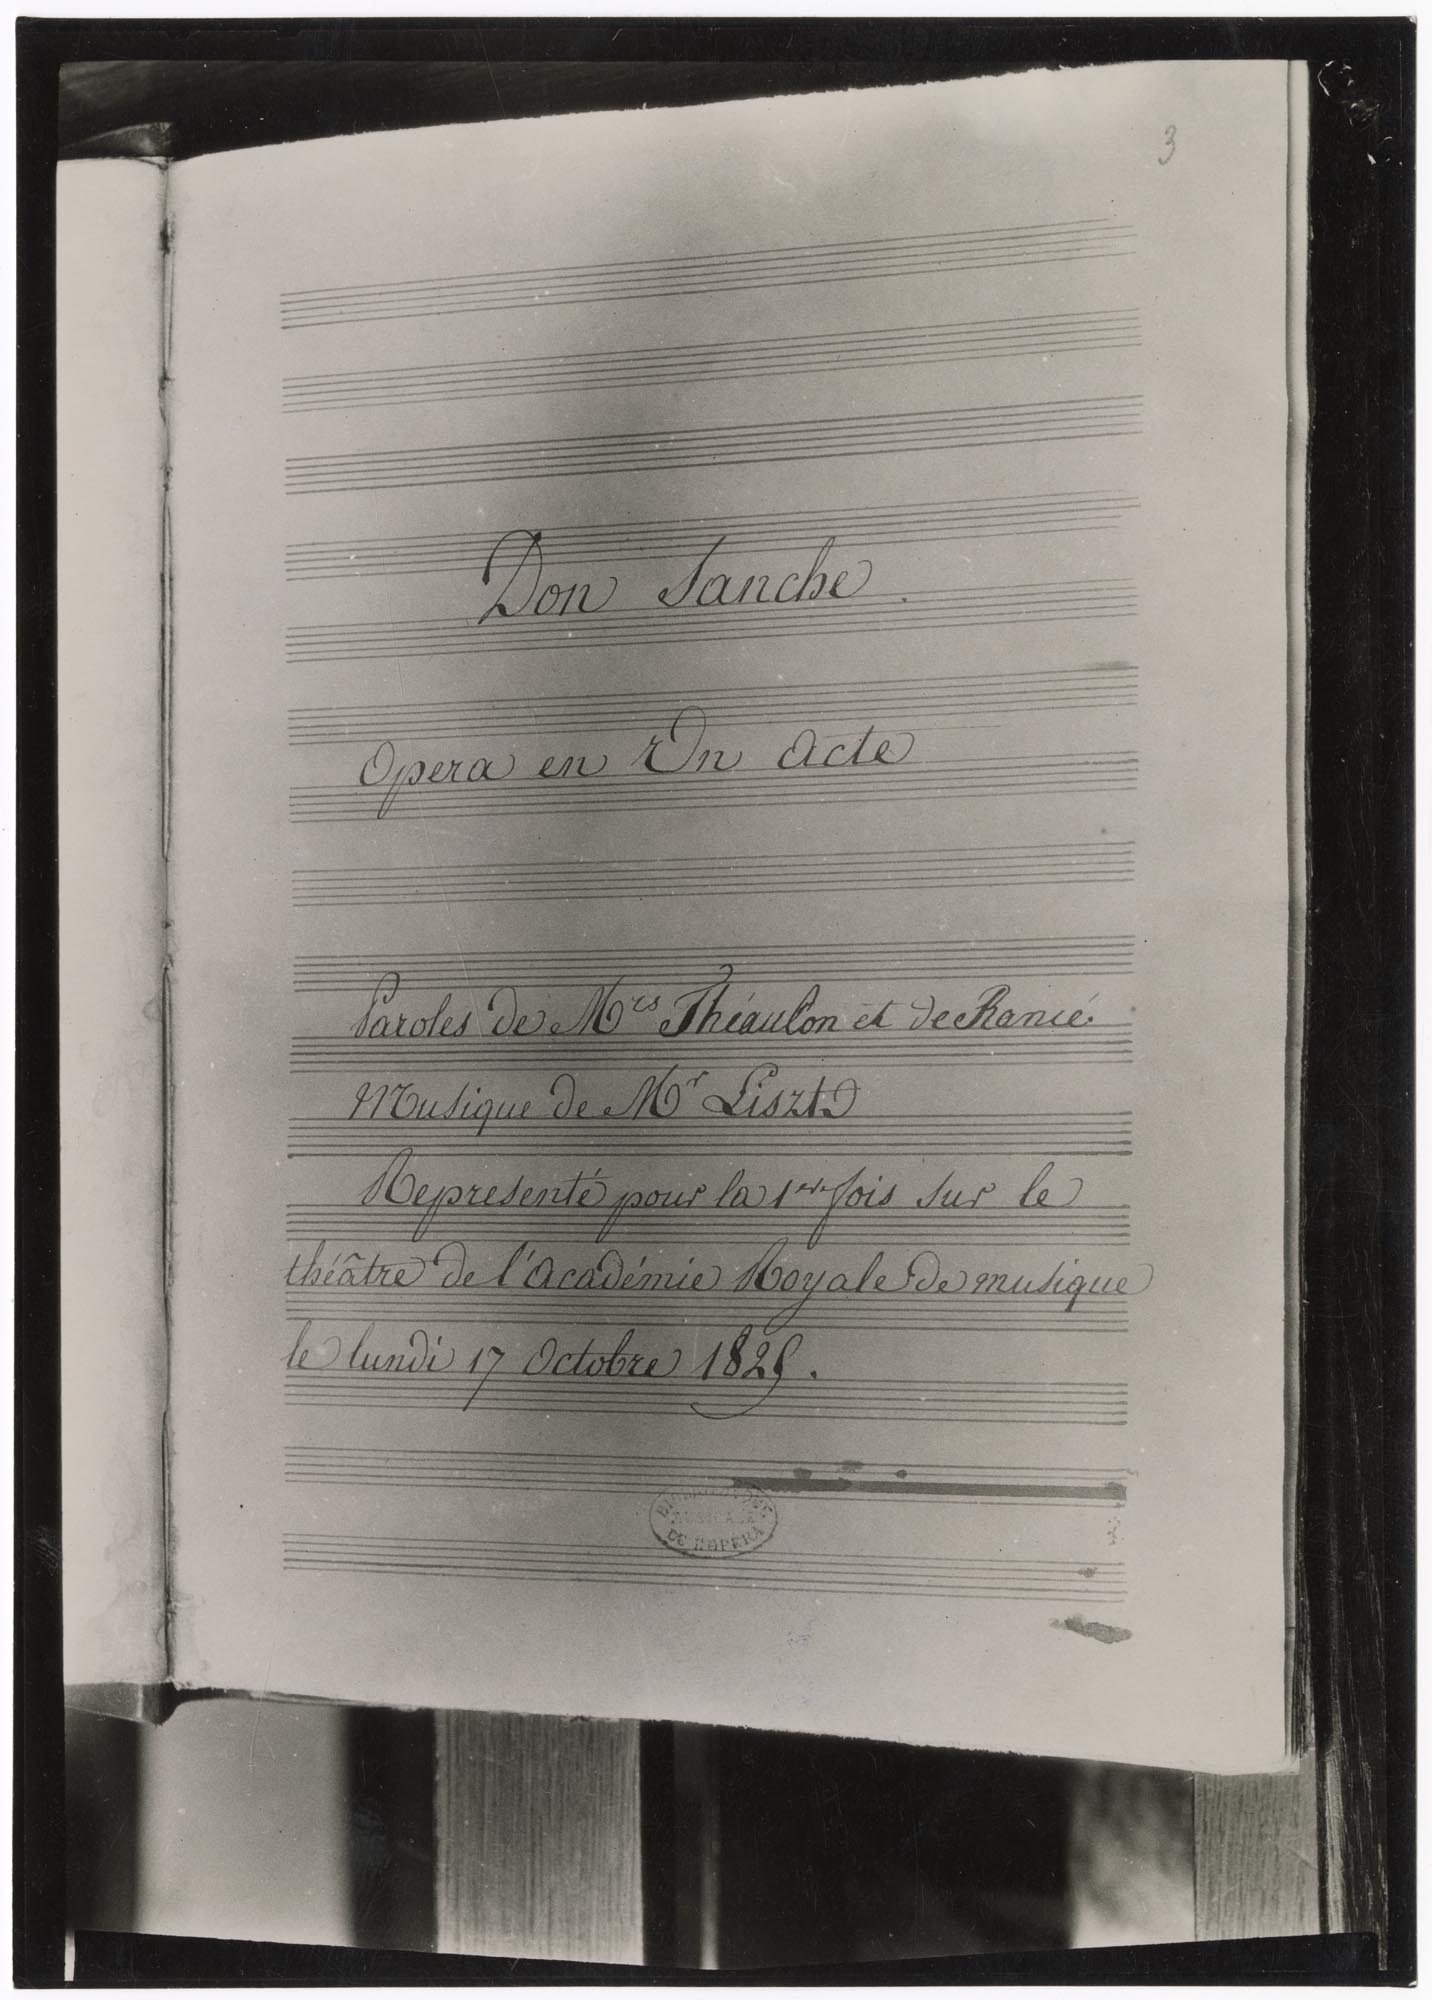 3
Don Sanche.
Opera en Un acte
Paroles de M.rs Théaulon et de Rancé.
Musique de M.r Liszt
Representé pour la 1.ere fois sur le
théâtre de l'académie Royale de musique
le lundi 17 Octobre 1825.
BIBLIOTHÈQUE
MUSICALE
DE L'OPÉRA